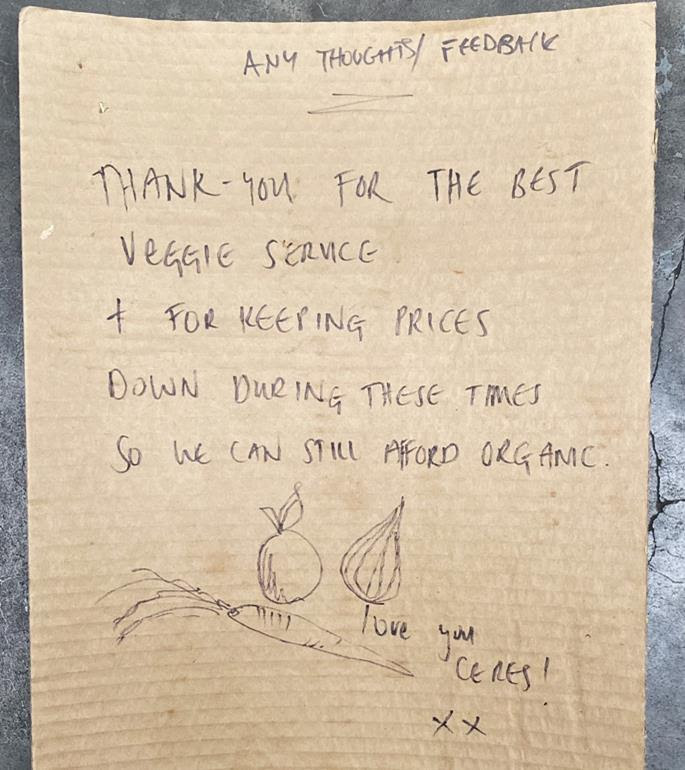 ANY THOUGHTS/ FEEDBACK
THANK-YOU FOR THE BEST
VEGGIE SERVICE
+ FOR KEEPING PRICES
DOWN DURING THESE TIMES
SO WE CAN STILL AFFORD ORGANIC.
love you
CERES!
XX